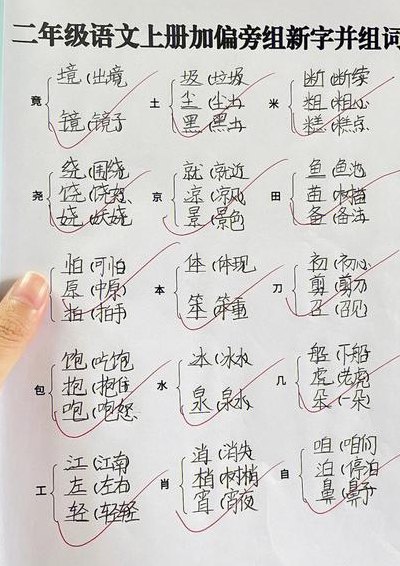 二年级语文上册加偏旁组新字并组词
竟 境(出境 镜(镜子
土 圾(垃圾 尘(尘土 黑(黑土
米 断(断续 粗(粗心 糕(糕点
尧 绕(围绕 饶(饶恕 娆(妖娆
京 就(就近 凉(凉风 景(景色
田 鱼(鱼池 苗(树苗 备(备注
怕(可怕 原(中原) 拍(拍手
本 体(体现 笨(笨重
刀 初(初心 剪(剪刀 召(召见
包 饱(吃饱 抱(抱住 咆(咆怒
水 冰(冰水 泉(泉水
几 船(下船 虎(老虎 朵(一朵)
工 江(江南 左(左右 轻(轻轻
肖 消(消失 梢(树梢 宵(宵夜
自 咱(咱们 泊(停泊 鼻(鼻子